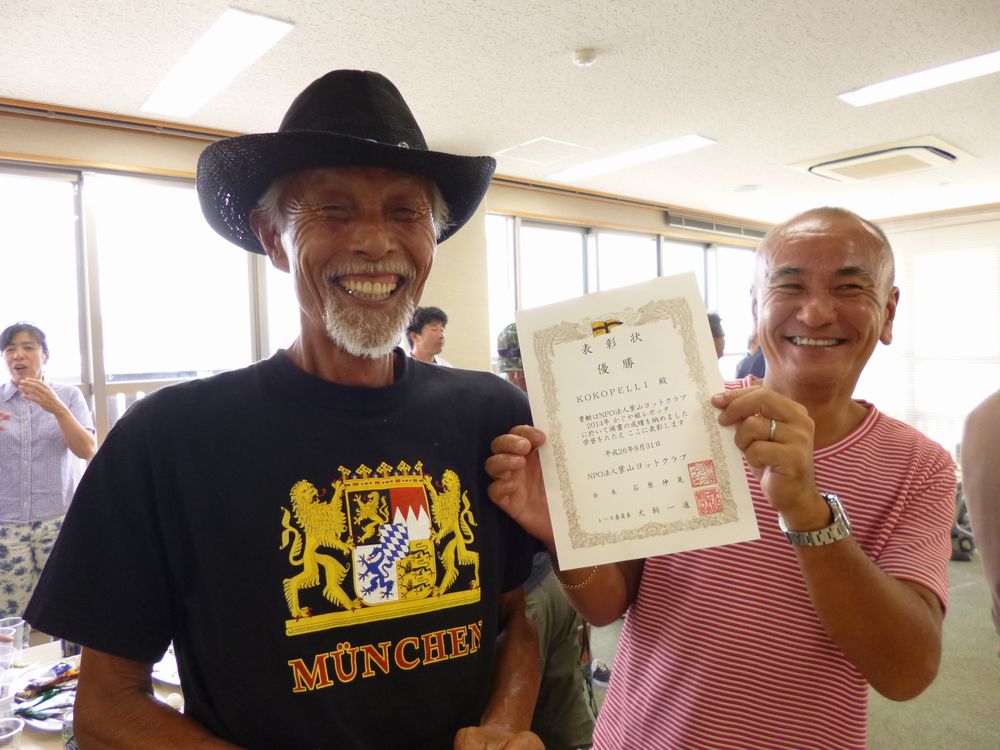 表彰状
優勝
KOKOPELLI 殿
貴艇はNPO法人葉山ヨットクラブ
2014年 かぐや姫レガッタ
に於いて頭書の成績を納めました
栄誉をたたえ ここに表彰します
平成26年8月31日
NPO法人葉山ヨットクラブ
会長 石原伸晃
レース委員長 犬飼一通
MÜNCHEN